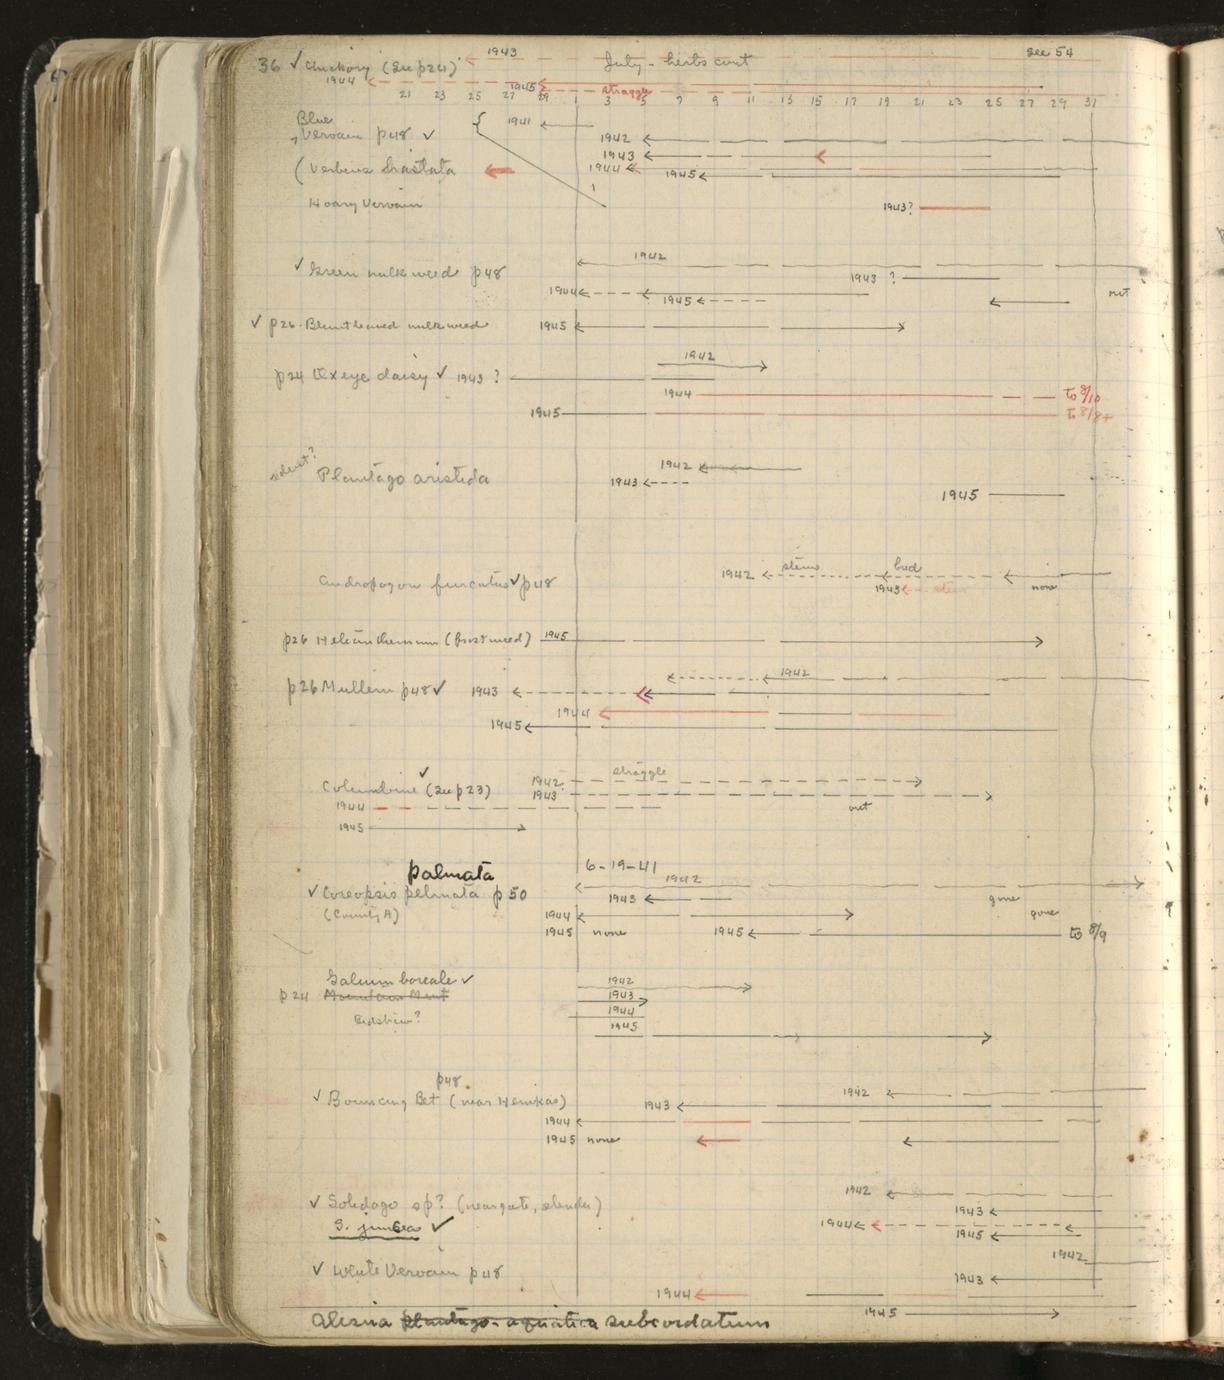 36 ✓ Chickory (see p24) 1943 July - herbs cont see 54
1944 1945 straggle
21 23 25 27 29 1 3 5 7 9 11 13 15 17 19 21 23 25 27 29 31
Blue 1941
Vervain p48 ✓ 1942
1943
(Verbena hastata 1944 1945
Hoary Vervain 1943?
1942
✓ Green milkweed p48 1943 ?
1944 1945 out
✓ p26 - Bluntleaved milkweed 1945
1942
p24 Oxeye daisy ✓ 1943 ?
1944 to 8/10
1945 to 8/8+
1942
Plantago aristida 1943
1945
stems bud
Andropogon furcatus ✓ p48 1942
1943 stem none
p26 Helianthemum (frostweed) 1945
1942
p26 Mullein p48 ✓ 1943
1944
1945
straggle
Columbine ✓ (see p23) 1942
1943
1944 out
1945
palmata 6-19-41
1942
✓ Coreopsis pelmata p 50 1943 gone
(County A) 1944 gone
1945 none 1945 to 8/9
Galium boreale ✓ 1942
p24 Mountain Mint 1943
Bedstraw? 1944
1945
p48
✓ Bouncing Bet (near Henikas) 1943 1942
1944
1945 none
1942
✓ Solidago sp? (near gate, slender) 1943
S. juncea ✓ 1944
1945
1942
✓ White Vervain p48 1943
1944
1945
Alisma plantago-aquatica subcordatum